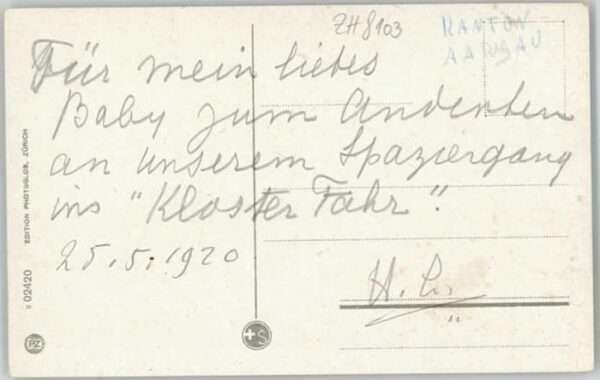 ZH 8103
KANTON
AARGAU
Für mein liebes
Baby zum Andenken
an unserem Spaziergang
ins "Kloster Fahr".
25.5.1920
H. L.
EDITION PHOTOGLOB, ZÜRICH
02420
PZ